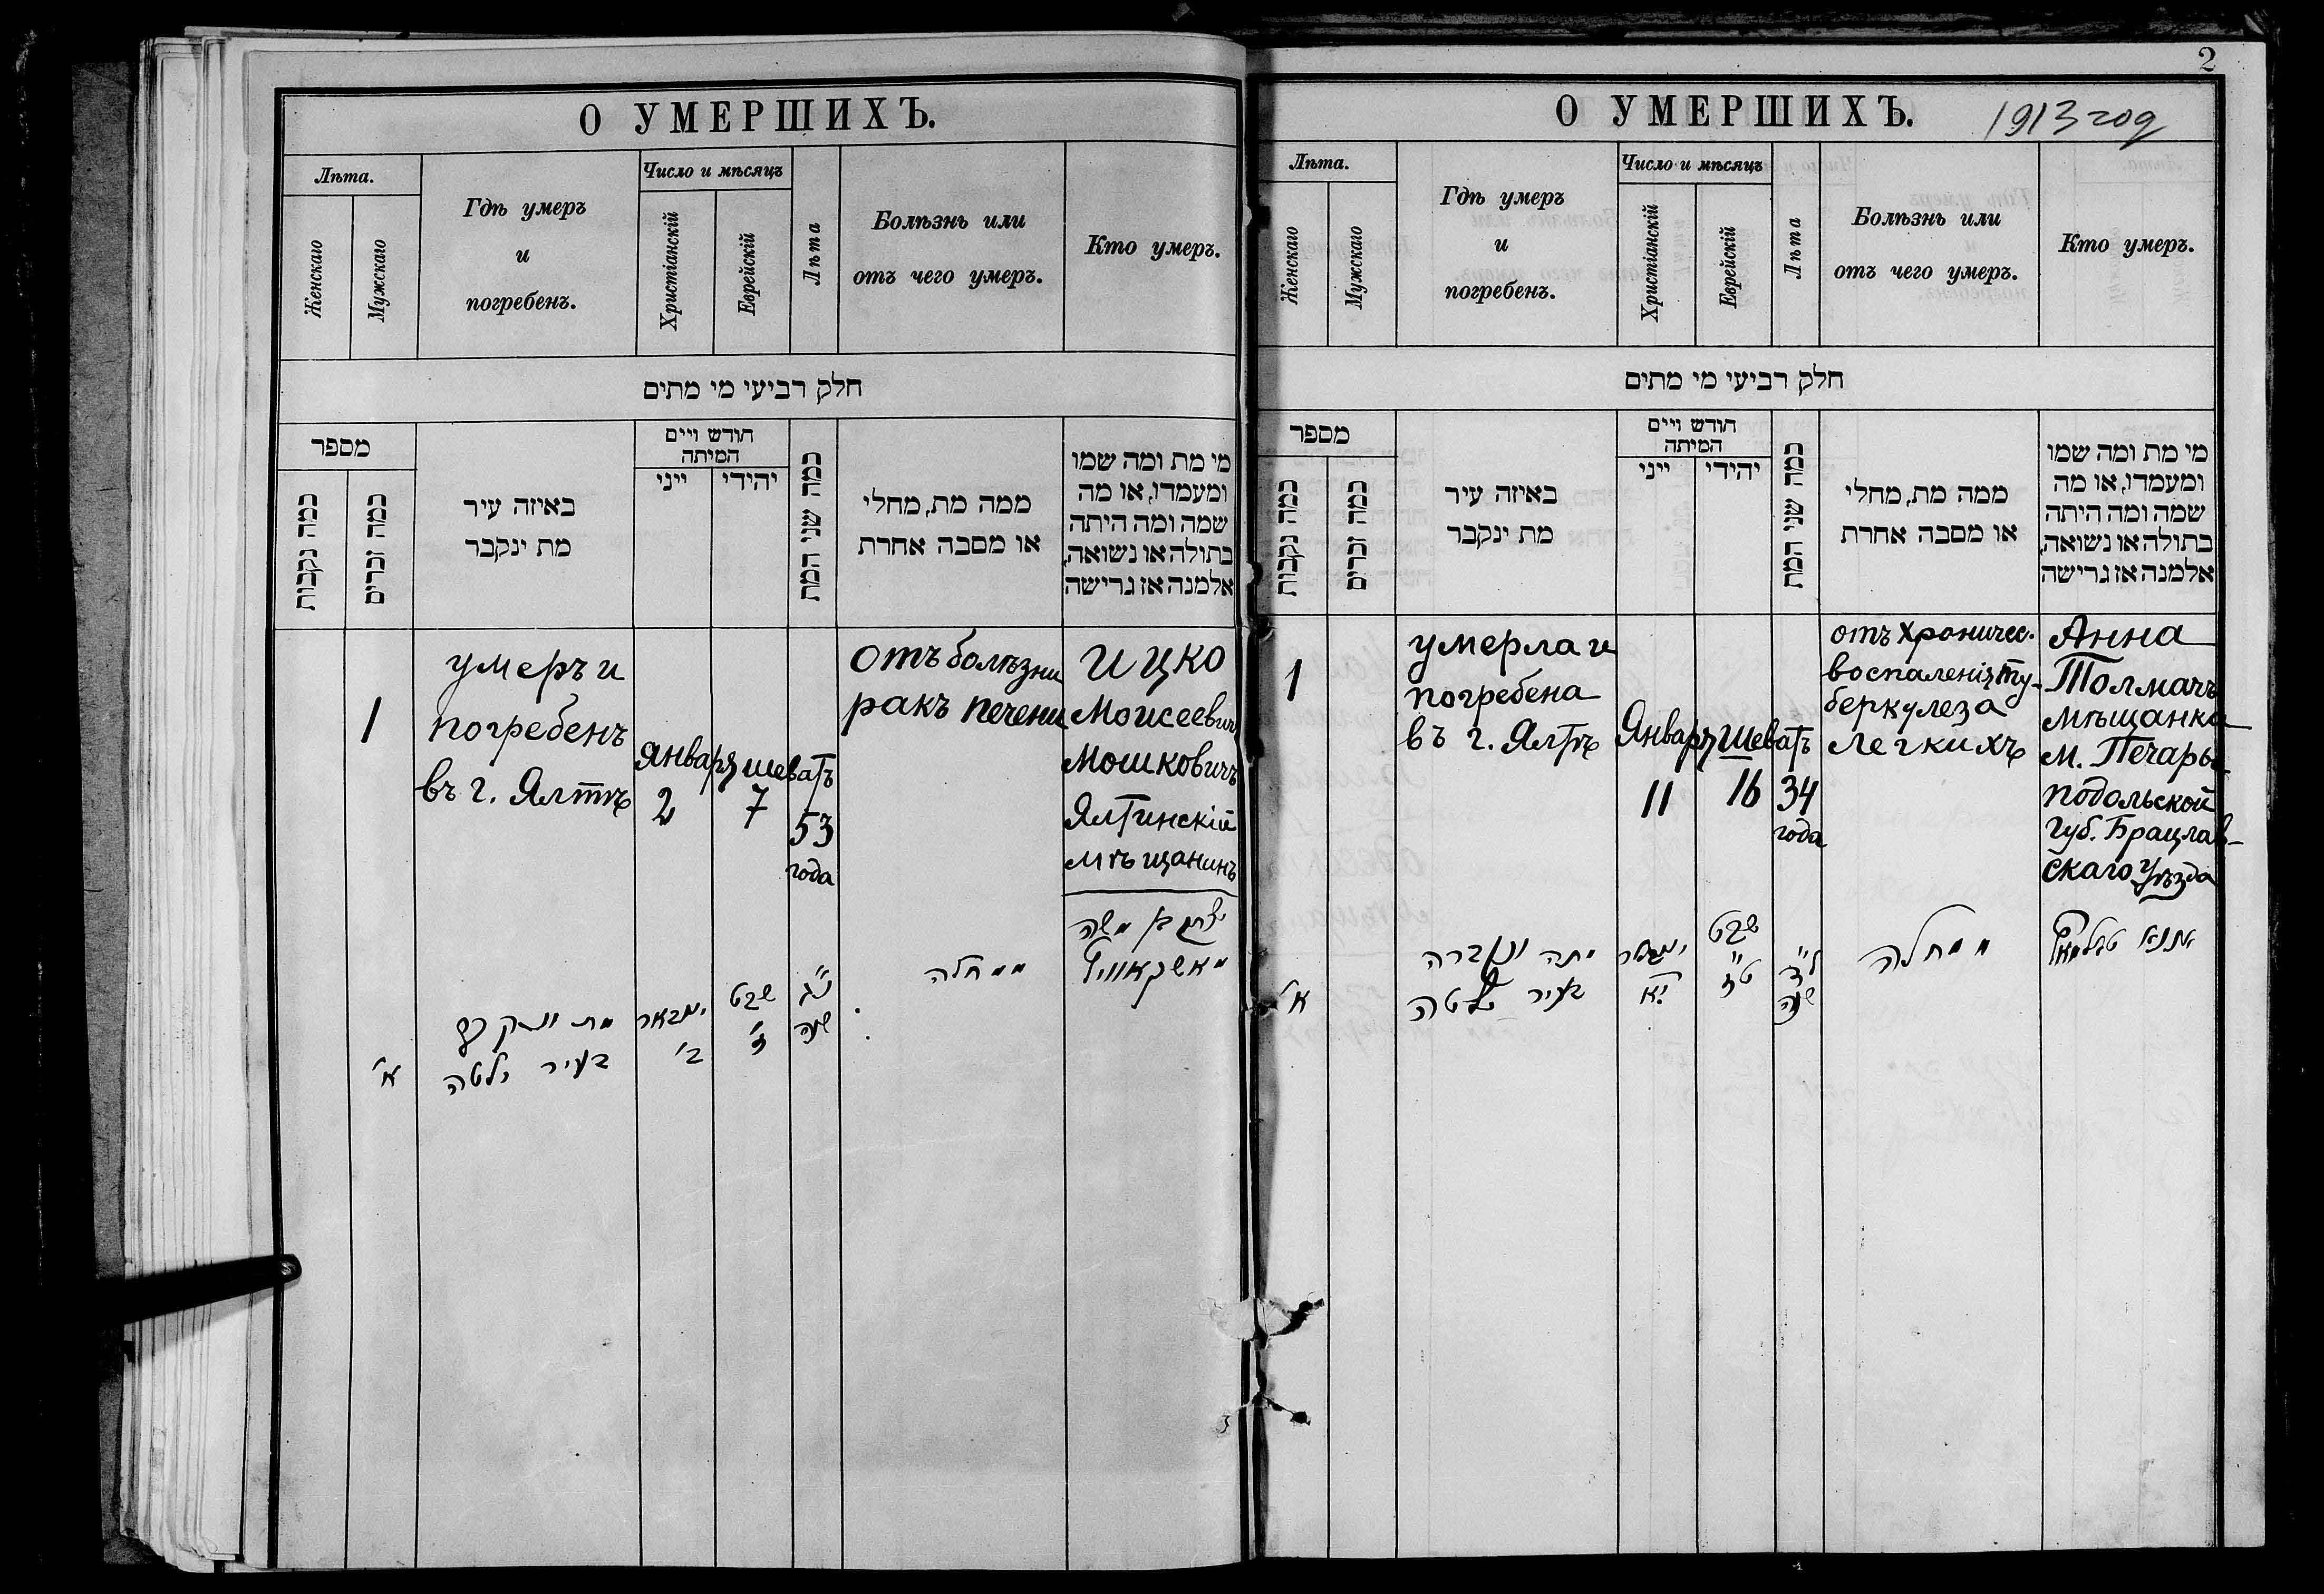 О УМЕРШИХЪ.
Лѣта.
Женскаго
Мужскаго
Гдѣ умеръ
и
погребенъ.
Число и мѣсяцъ
Христіанскій
Еврейскій
Лѣта
Болѣзнь или
отъ чего умеръ.
Кто умеръ.
חלק רביעי מי מתים
מספר
כמה נקבות
כמה זכרים
באיזה עיר
מת ינקבר
חודש ויים
המיתה
ייני
יהידי
כמה שני המת
ממה מת, מחלי
או מסבה אחרת
מי מת ומה שמו
ומעמדו, או מה
שמה ומה היתה
בתולה או נשואה,
אלמנה אז גרישה
1
умеръ и
погребенъ
въ г. Ялтѣ
Января
2
шеватъ
7
53
года
отъ болѣзни
ракъ печени
Ицко
Моисеевичъ
Мошковичъ
Ялтинскій
мѣщанинъ
א'
בעיר ילטה
ינואר
ב'
שבט
ז'
נ"ג
שנה
ממחלה
יצחק בן משה
מאשקאוויץ
2
О УМЕРШИХЪ.
1913 год
Лѣта.
Женскаго
Мужскаго
Гдѣ умеръ
и
погребенъ.
Число и мѣсяцъ
Христіанскій
Еврейскій
Лѣта
Болѣзнь или
отъ чего умеръ.
Кто умеръ.
חלק רביעי מי מתים
מספר
כמה נקבות
כמה זכרים
באיזה עיר
מת ינקבר
חודש ויים
המיתה
ייני
יהידי
כמה שני המת
ממה מת, מחלי
או מסבה אחרת
מי מת ומה שמו
ומעמדו, או מה
שמה ומה היתה
בתולה או נשואה,
אלמנה אז גרישה
1
умерла и
погребена
въ г. Ялтѣ
Января
11
Шеватъ
16
34
года
отъ хроничес.
воспаленія ту-
беркулеза
легкихъ
Анна
Толмачъ
мѣщанка
м. Печары
подольской
губ. Брацлав-
скаго уѣзда
א'
מתה ונקברה
בעיר ילטה
ינואר
י"א
שבט
ט"ז
ל"ד
שנה
ממחלה
אננא טאלמאץ